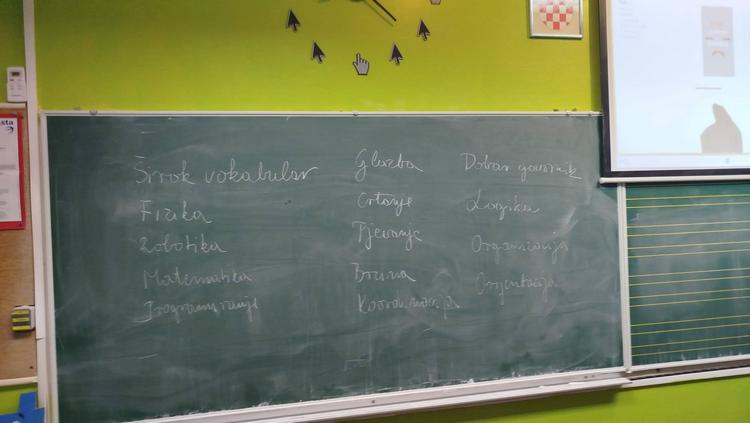 Širok vokabular
Fizika
Robotika
Matematika
Programiranje
Glazba
Crtanje
Pjevanje
Brzina
Dobar govornik
Logika
Organizacija
Orijentacija